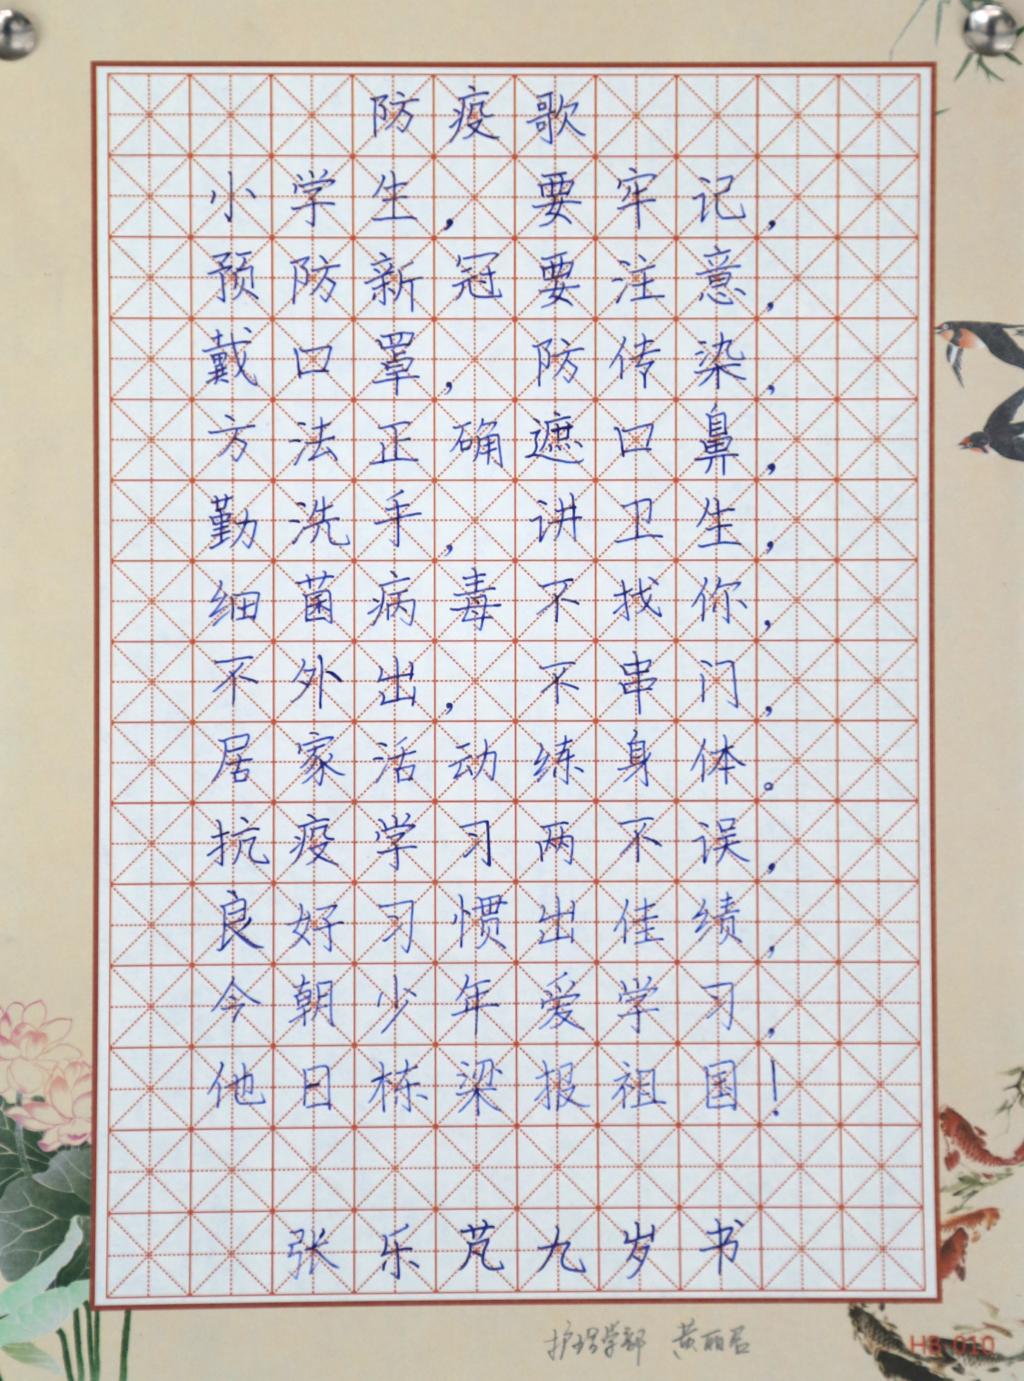 防疫歌
小学生，要牢记，
预防新冠要注意，
戴口罩，防传染，
方法正确遮口鼻，
勤洗手，讲卫生，
细菌病毒不找你，
不外出，不串门，
居家活动练身体。
抗疫学习两不误，
良好习惯出佳绩，
今朝少年爱学习，
他日栋梁报祖国！
张乐芃九岁书
护理学部 黄丽君
HB-010